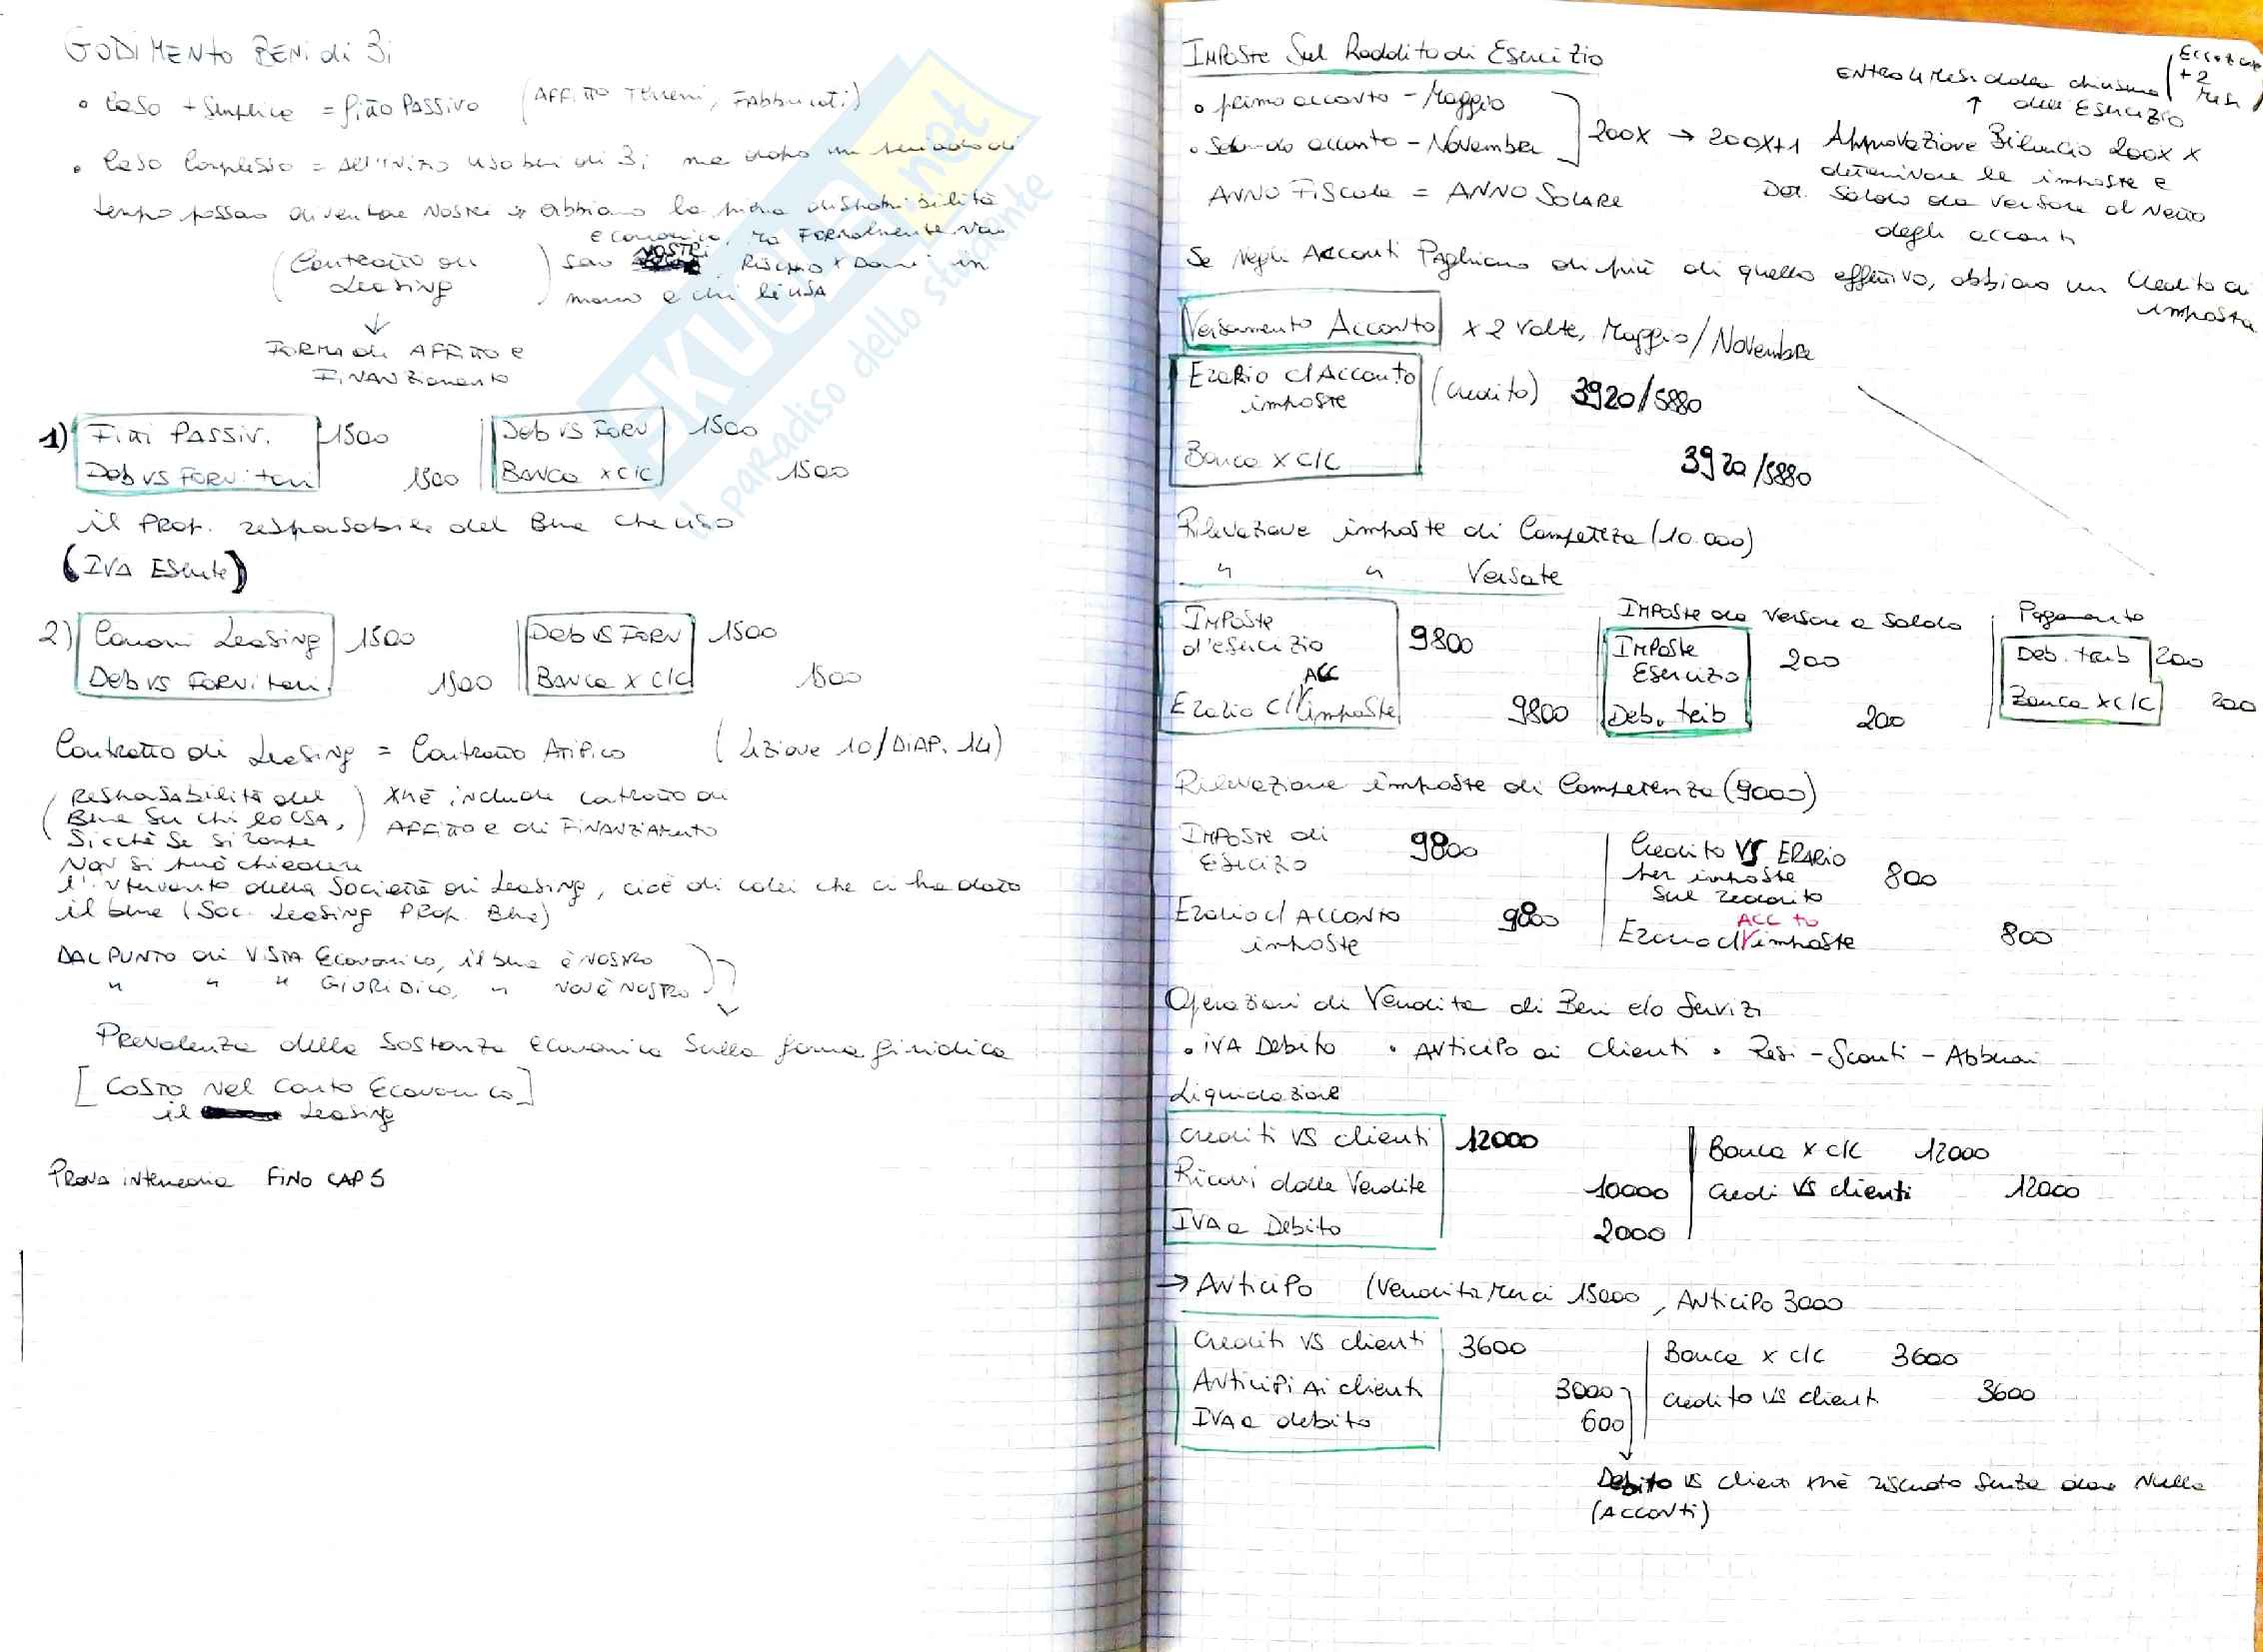 GODIMENTO BENI di 3i
• Caso + Semplice = fitto PASSIVO (AFFITTO Terreni, FABBricati)
• Caso Complesso = All'inizio uso beni di 3i ma dopo un periodo di
tempo possono diventare Nostri e abbiamo la piena disponibilità
economica, ma FORMALMENTE NON
(Contratto di Leasing) son NOSTRI, Rischio x Danni in
mano a chi li USA
↓
FORMA di AFFITTO e
FINANZIAMENTO
1) Fitti PASSIV. 1500
Deb VS FORNitori 1500
Deb VS FORN 1500
BANCA x C/C 1500
il PROP. responsabile del Bene che uso
(IVA ESENTE)
2) Canoni Leasing 1500
Deb VS FORNitori. 1500
Deb VS FORN 1500
BANCA x C/C 1500
Contratto di Leasing = Contratto Atipico (Lezione 10/DIAP. 14)
(RESPONSABILITÀ del
Bene su chi lo USA,
Sicchè Se si rompe
NON Si può chiedere
xkè include contratto di
AFFITTO e di FINANZIAMENTO
l'intervento della Società di Leasing, cioè di colei che ci ha dato
il bene (Soc. Leasing PROP. Bene)
DAL PUNTO di VISTA Economico, il bene è NOSTRO
" " " GIURIDICO, " NON è NOSTRO
PREVALENZA della Sostanza economica Sulla forma giuridica
[COSTO Nel Conto Economico]
il Leasing
PROVA intermedia FINO CAP 5
IMPOSTE Sul Reddito di Esercizio
• primo acconto - Maggio
• Secondo acconto - Novembre
200X → 200X+1 Approvazione Bilancio 200X x
determinare le imposte e
Det. Saldo da versare al Netto
degli acconti
ENTRO 4 MESI dalla chiusura
↑ dell'ESERCIZIO
+2
Mesi
ANNO FISCALE = ANNO SOLARE
Se Negli Acconti Paghiamo di più di quello effettivo, abbiamo un Credito di
imposta
Versamento Acconto x 2 volte, Maggio/Novembre
Erario c/Acconto
imposte (credito) 3920/5880
Banca x C/C 3920/5880
Rilevazione imposte di Competeza (10.000)
" " Versate
IMPOSTE
d'esercizio 9800
Erario C/ ACC imposte 9800
IMPOSTE da versare a Saldo
IMPOSTE
Esercizio 200
Deb. trib 200
Pagamento
Deb. trib 200
Banca x C/C 200
Rilevazione imposte di Competenza (9000)
IMPOSTE di
Esercizo 9800
Erario c/ ACCONTO
imposte 9800
Credito VS ERARIO
per imposte
sul reddito 800
Erario c/ ACC to imposte 800
Operazioni di Vendita di Beni e/o Servizi
• IVA Debito • Anticipo ai Clienti • Resi - Sconti - Abbuoni
Liquidazione
Crediti VS clienti 12000
Ricavi dalle Vendite 10000
IVA a Debito 2000
Banca x c/c 12000
Credi VS clienti 12000
→ Anticipo (Vendita Merci 15000, Anticipo 3000
Crediti VS clienti 3600
Anticipi Ai clienti 3000
IVA a debito 600
Banca x c/c 3600
Credito VS clienti 3600
↓
Debito VS Clienti xkè riscuoto Senza dare Nulla
(Acconti)
EKUON.net
il paradiso dello studente